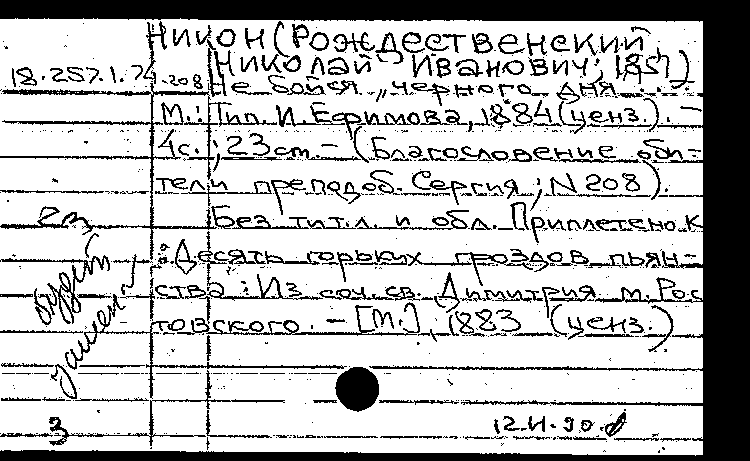 Никон (Рождественский,
Николай Иванович; 1851)
18.257.1.74.208
Не бойся „черного дня ...
М.: Тип. И. Ефимова, 1884 (ценз.). -
4с.; 23 ст. - (Благословение оби=
тели преподоб. Сергия; N 208).
23
Без тит.л. и обл. Приплетено к
: Десять горьких гроздов пьян-
ства: Из соч. св. Димитрия м. Рос
товского. - [М.], 1883 (ценз.)
будет
3
12.VI.90.